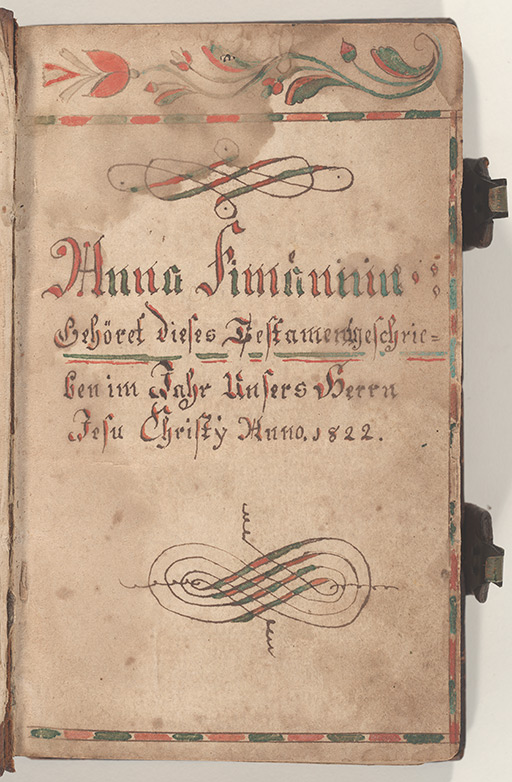 Anna Simännin
Gehöret dieses Testament geschrie=
ben im Jahr Unsers Herrn
Jesu Christÿ Anno. 1822.